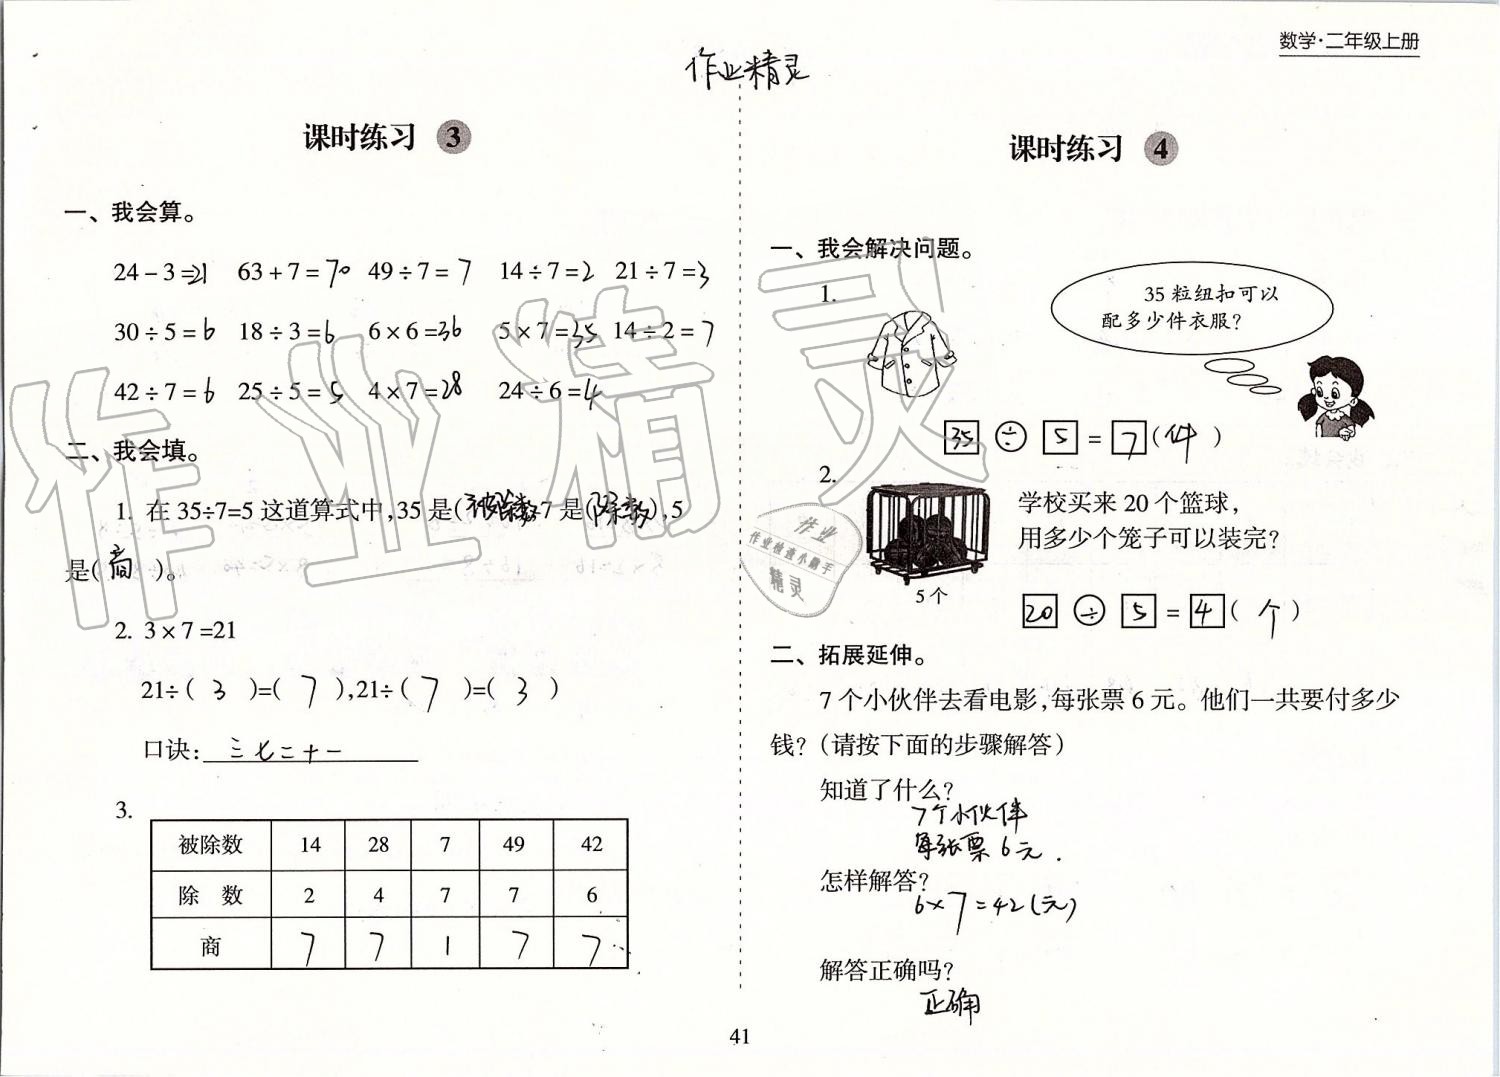 数学·二年级上册
作业精灵
课时练习 3
一、我会算。
24-3=21 63+7=70 49÷7=7 14÷7=2 21÷7=3
30÷5=6 18÷3=6 6×6=36 5×7=35 14÷2=7
42÷7=6 25÷5=5 4×7=28 24÷6=4
二、我会填。
1. 在35÷7=5这道算式中,35是(被除数 7是(除数),5
是( 商 )。
2. 3×7=21
21÷( 3 )=( 7 ),21÷( 7 )=( 3 )
口诀: 三七二十一
3.
被除数 14 28 7 49 42
除 数 2 4 7 7 6
商 7 7 1 7 7
课时练习 4
一、我会解决问题。
1.
35粒纽扣可以
配多少件衣服?
35 ÷ 5 = 7 (件)
2.
学校买来20个篮球,
用多少个笼子可以装完?
5个
20 ÷ 5 = 4 ( 个 )
二、拓展延伸。
7个小伙伴去看电影,每张票6元。他们一共要付多少
钱?(请按下面的步骤解答)
知道了什么?
7个小伙伴
每张票6元.
怎样解答?
6×7=42(元)
解答正确吗?
正确
41
作业精灵
作业
作业检查小帮手
精灵